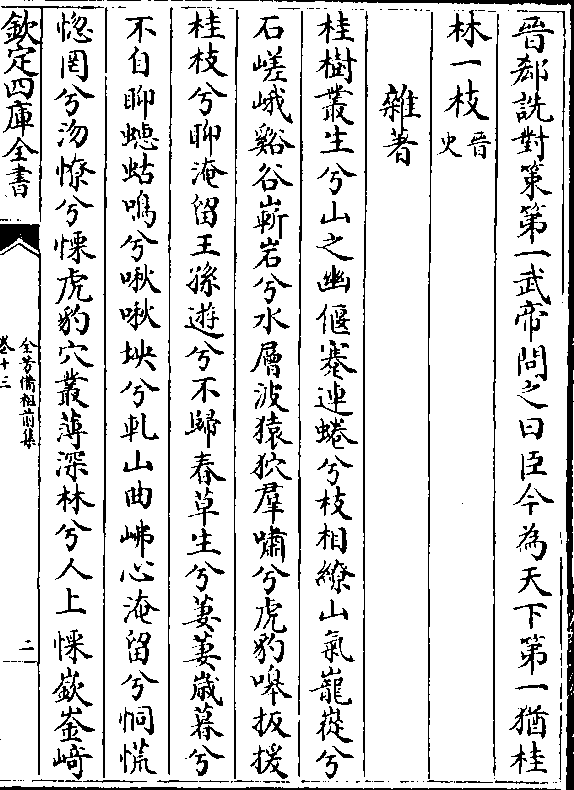 晉郄詵對策第一武帝問之曰臣今為天下第一猶桂
林一枝晉史
雜著
桂樹叢生兮山之幽偃蹇連蜷兮枝相繚山氣巃嵸兮
石嵯峨谿谷嶄岩兮水層波猿狖羣嘯兮虎豹嗥扳援
桂枝兮聊淹留王孫遊兮不歸春草生兮萋萋歲暮兮
不自聊蟪蛄鳴兮啾啾坱兮軋山曲岪心淹留兮恫慌
惚罔兮沕憭兮慄虎豹穴叢薄深林兮人上慄嶔崟崎
欽定四庫全書
全芳備祖前集
卷十三
二